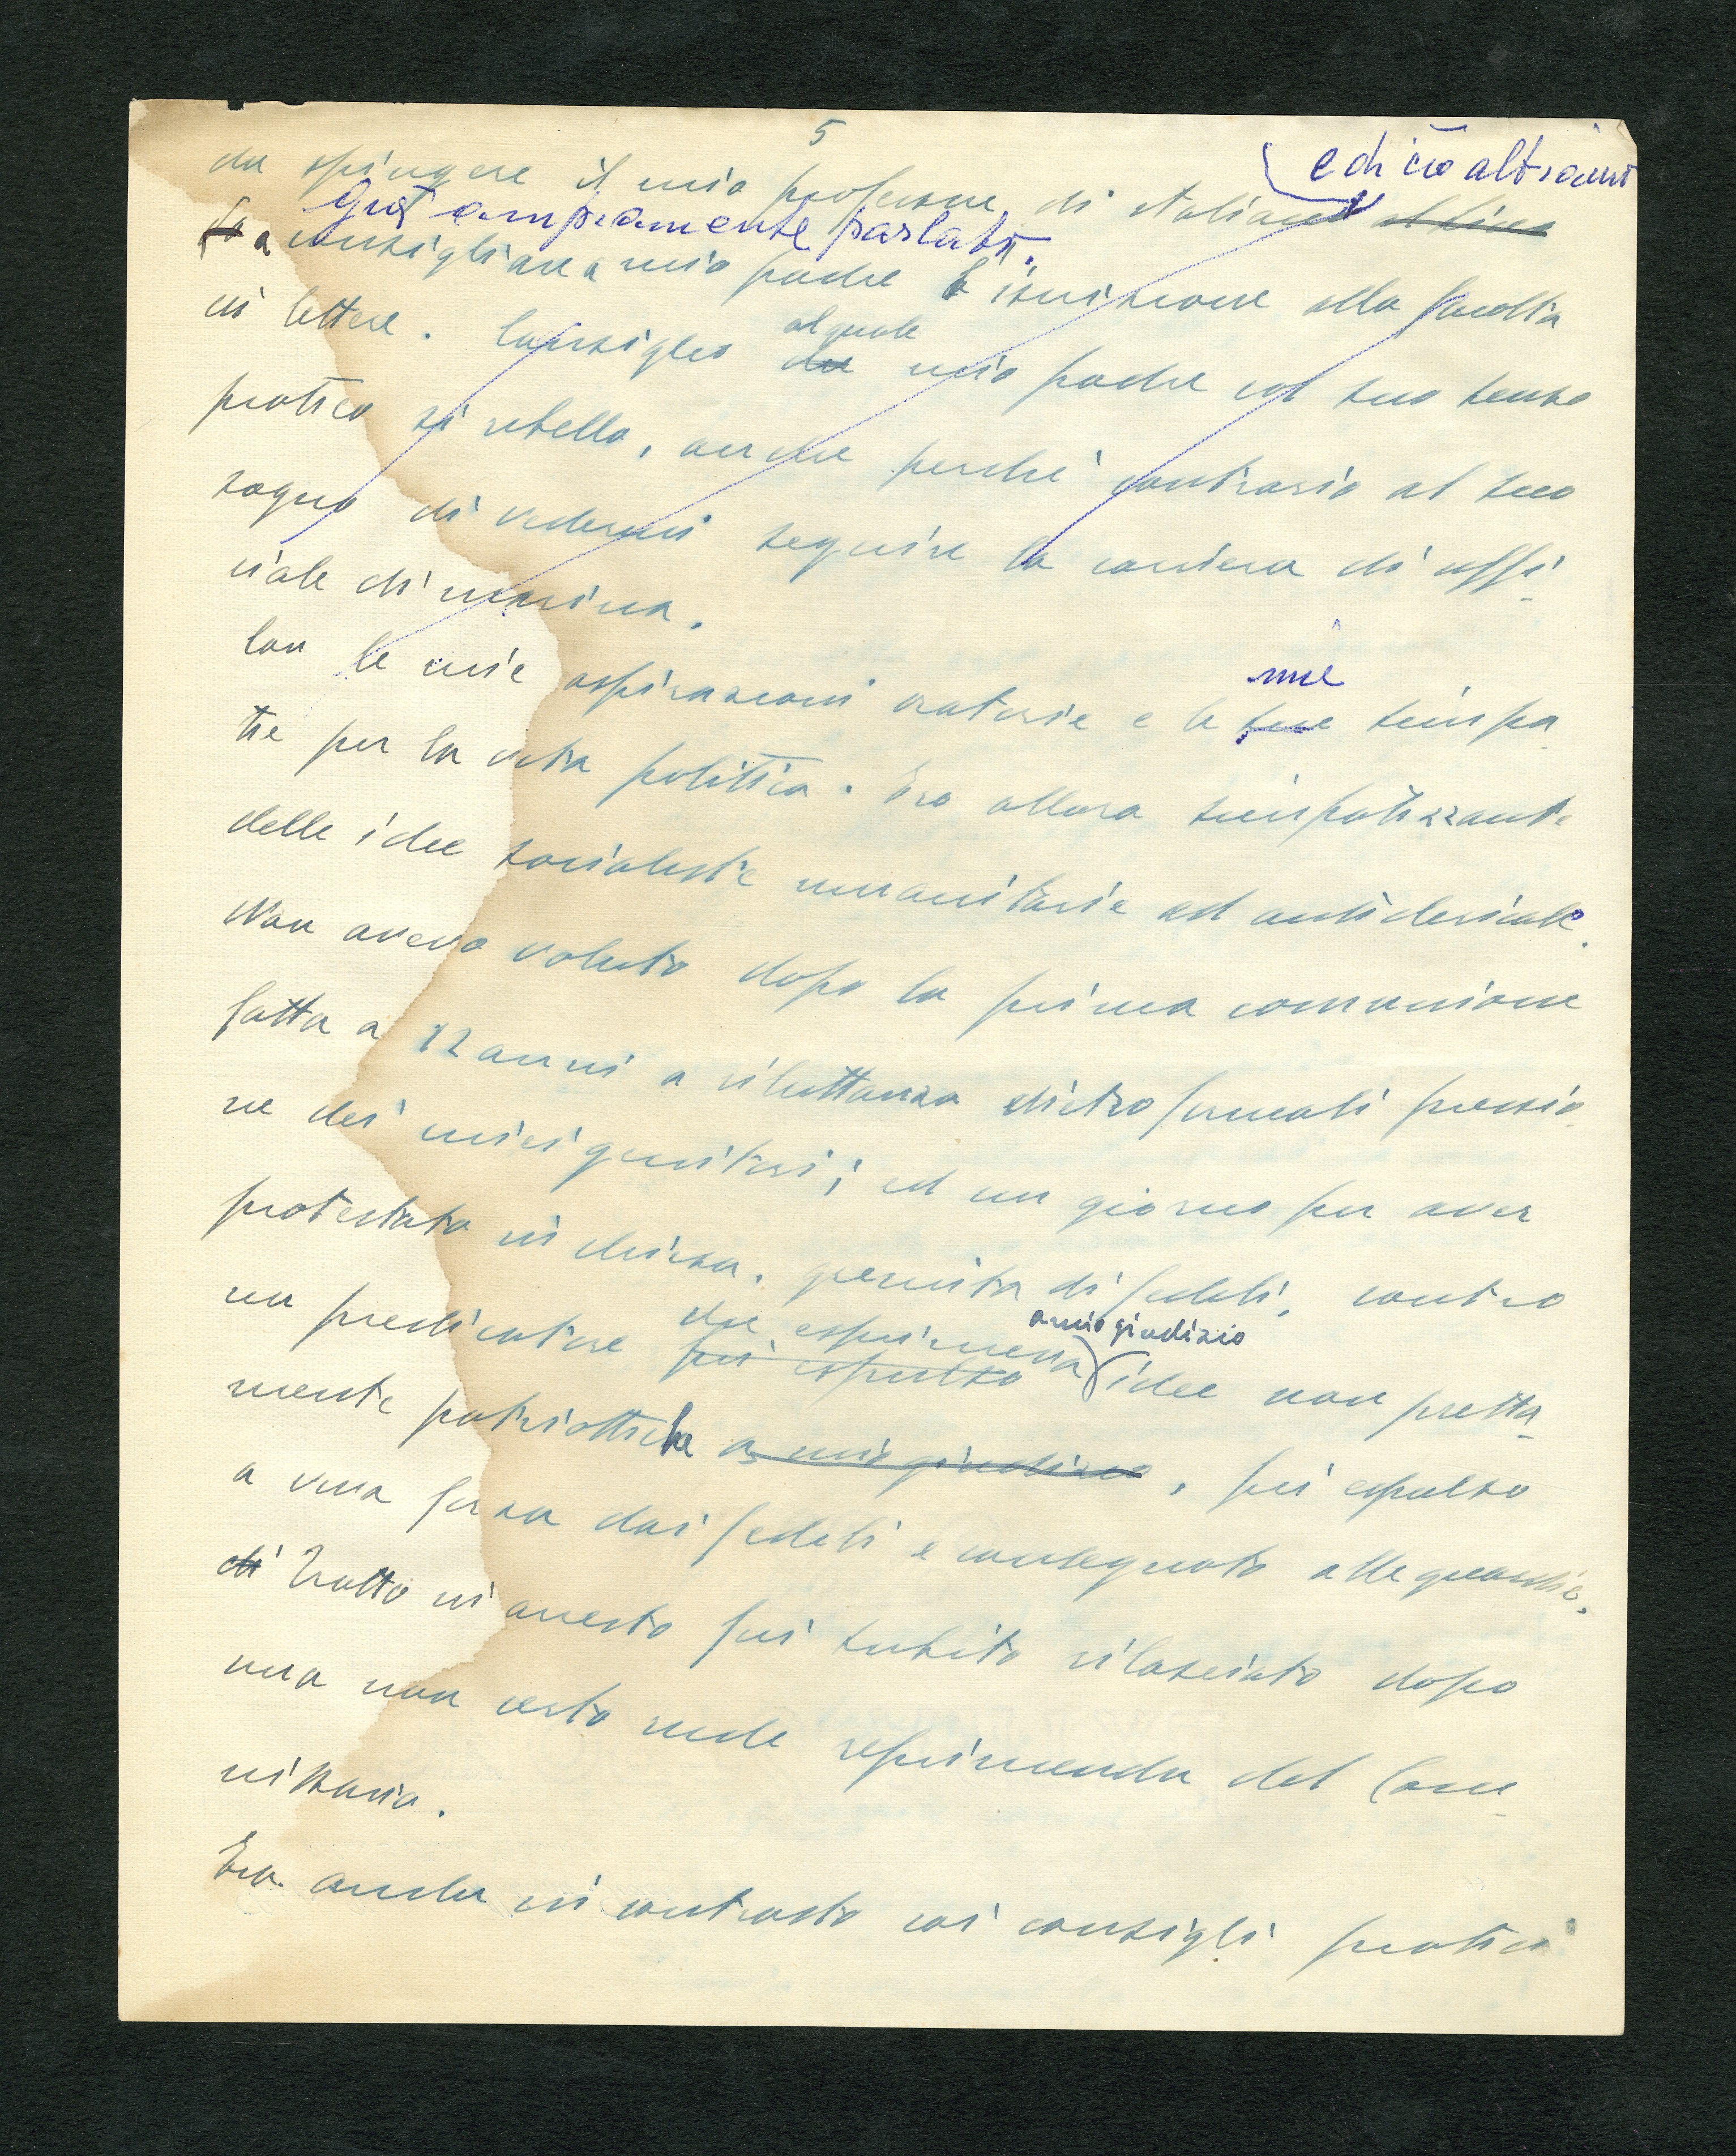 5
ed in ciò altrove
da spingere il mio professore di italiano al liceo
già ampiamente parlato.
a consigliare a mio padre l'iscrizione alla facoltà
in lettere. Consiglio al quale dal mio padre col suo senso
pratico si ribellò, anche perché contrario al suo
sogno di vedermi seguire la carriera di uffi-
ciale di marina.
Con le mie aspirazioni oratorie e le sue mie simpa-
tie per la vita politica. Ero allora simpatizzante
delle idee socialiste umanitarie ed anticlericale.
Non avevo voluto dopo la prima comunione
fatta a 12 anni a riluttanza dietro formali pressio-
ne dei miei genitori; ed un giorno per aver
protestato in chiesa, gremita di fedeli, contro
un predicatore fui espulso che esprimeva a mio giudizio idee non pretta-
mente patriottiche a mio giudizio, fui espulso
a viva forza dai fedeli e consegnato alle guardie.
di Tratto in arresto fui subito rilasciato dopo
una non certo rude reprimenda del Com-
missario.
Ero anche in contrasto coi consigli pratici